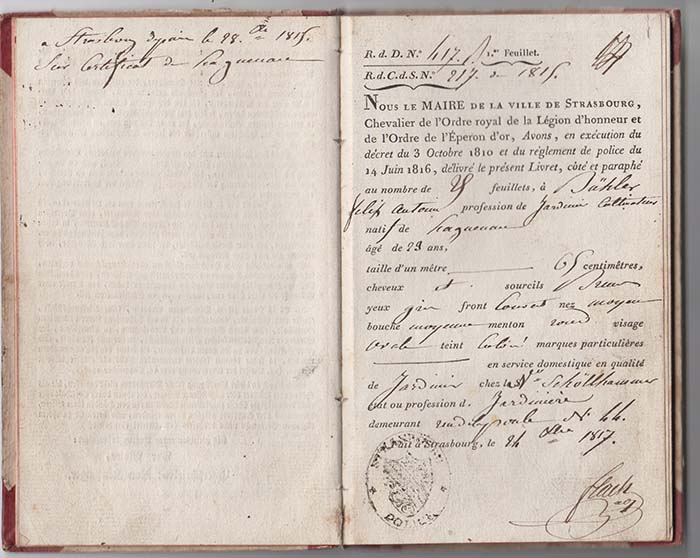 a Strasbourg depuis le 28. 8bre 1815.
Sur Certificat de haguenau
R. d. D. N.º 417. 1.er Feuillet.
R. d. C. d S. N.º 217. de 1815.
Nous le MAIRE DE LA VILLE DE STRASBOURG,
Chevalier de l'Ordre royal de la Légion d'honneur et
de l'Ordre de l'Éperon d'or, Avons, en exécution du
décret du 3 Octobre 1810 et du règlement de police du
14 Juin 1816, délivré le présent Livret, côté et paraphé
au nombre de 28 feuillets, à Bühler
felix Antoine profession de Jardinier Cultivateur
natif de haguenau
âgé de 29 ans,
taille d'un mètre 65 centimètres,
cheveux et sourcils Brun
yeux gris front Couvert nez moyen
bouche moyenne menton rond visage
Ovale teint Coloré marques particulières
en service domestique en qualité
de Jardinier chez la Ve Schöllhammer
état ou profession d. Jardinière
demeurant N. 44.
Fait à Strasbourg, le 24 8bre 1817.
POLICE